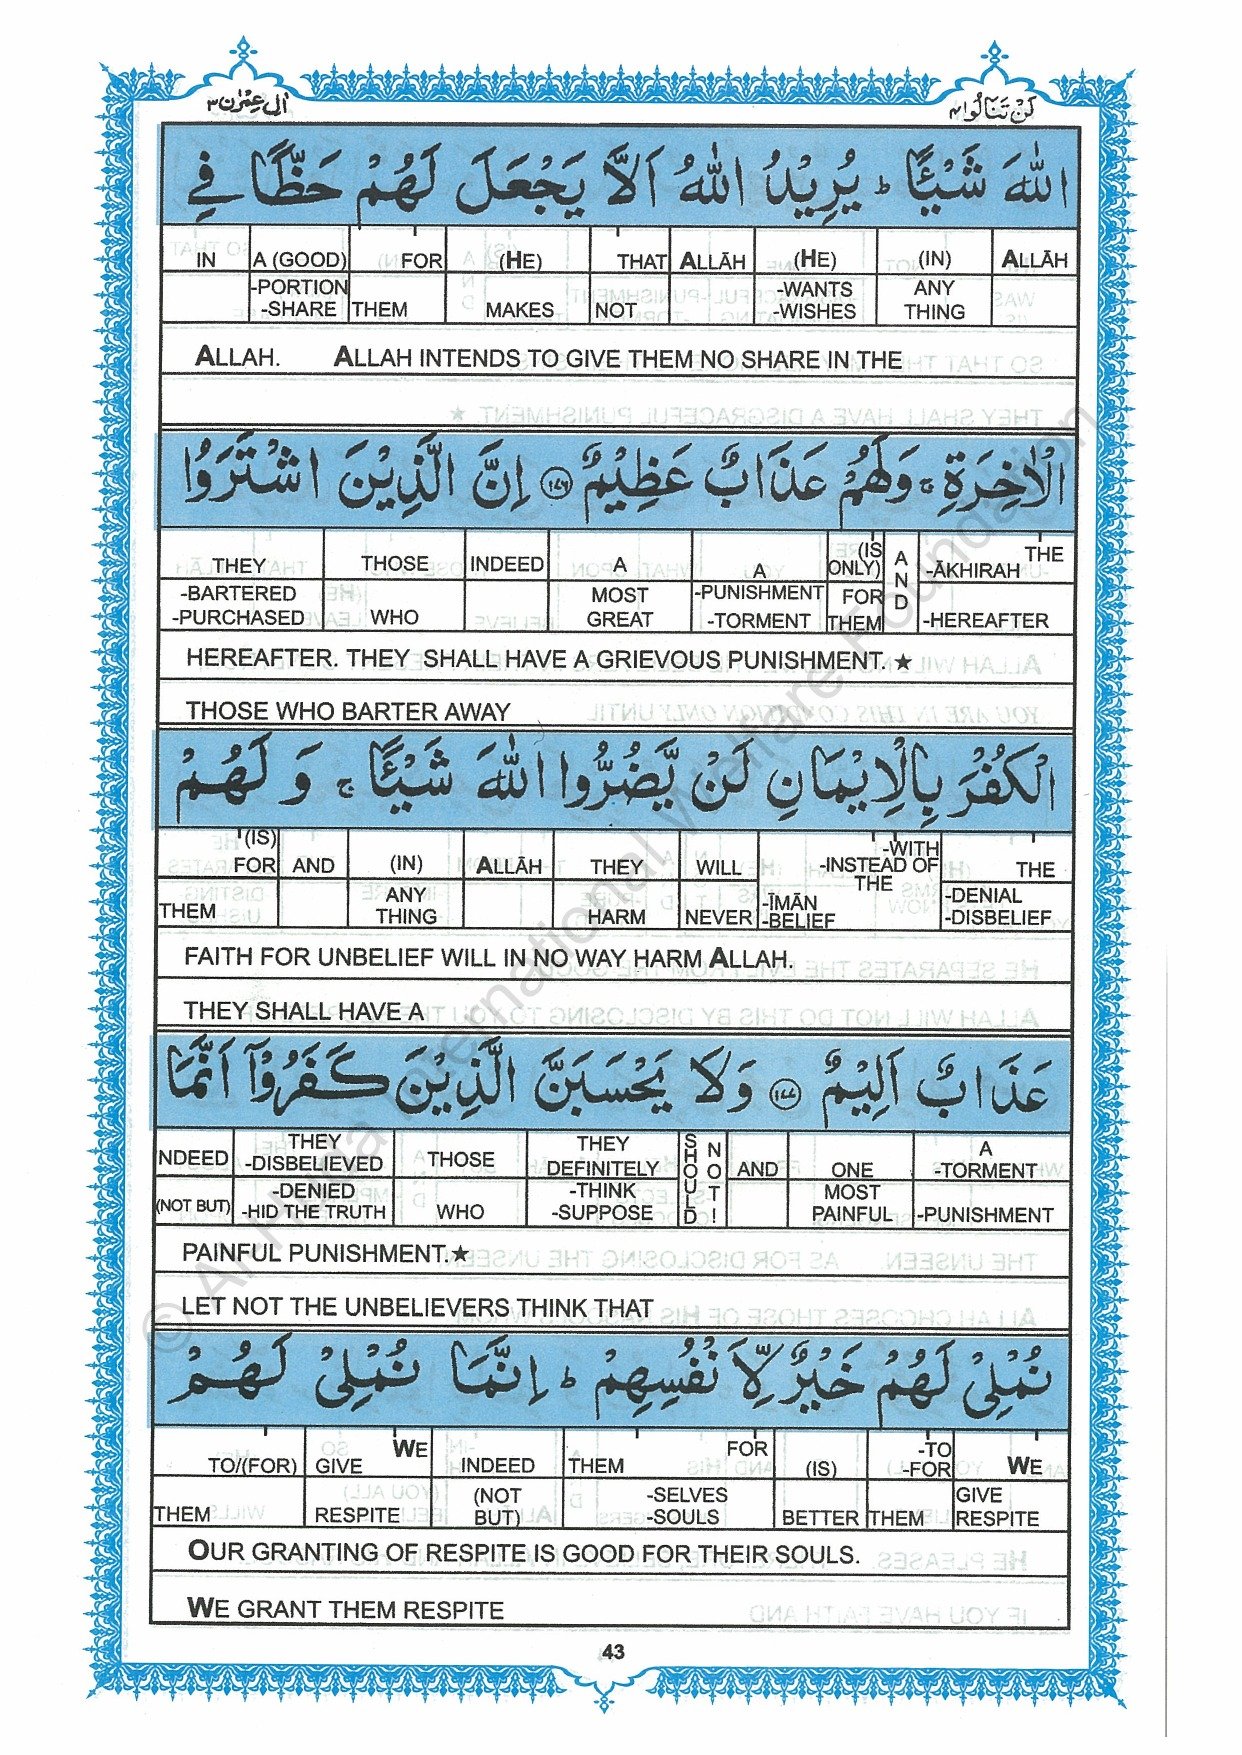 اٰلِ عِمْرٰن ٣
لَنْ تَنَالُوا ٤
اللّٰهَ شَيْـًٔا ؕ يُرِيْدُ اللّٰهُ اَلَّا يَجْعَلَ لَهُمْ حَظًّا فِي
IN A (GOOD) FOR (HE) THAT ALLĀH (HE) (IN) ALLĀH
-PORTION -SHARE THEM MAKES NOT -WANTS -WISHES ANY THING
ALLAH. ALLAH INTENDS TO GIVE THEM NO SHARE IN THE
الْاٰخِرَةِ ۚ وَلَهُمْ عَذَابٌ عَظِيْمٌ ۝١٧٦ اِنَّ الَّذِيْنَ اشْتَرَوُا
THEY THOSE INDEED A A (IS ONLY) AND THE -ĀKHIRAH
-BARTERED -PURCHASED WHO MOST GREAT -PUNISHMENT -TORMENT FOR THEM -HEREAFTER
HEREAFTER. THEY SHALL HAVE A GRIEVOUS PUNISHMENT.★
THOSE WHO BARTER AWAY
الْكُفْرَ بِالْاِيْمَانِ لَنْ يَّضُرُّوا اللّٰهَ شَيْـًٔا ۚ وَلَهُمْ
(IS) FOR AND (IN) ALLĀH THEY WILL -WITH -INSTEAD OF THE THE
THEM ANY THING HARM NEVER -ĪMĀN -BELIEF -DENIAL -DISBELIEF
FAITH FOR UNBELIEF WILL IN NO WAY HARM ALLAH.
THEY SHALL HAVE A
عَذَابٌ اَلِيْمٌ ۝١٧٧ وَلَا يَحْسَبَنَّ الَّذِيْنَ كَفَرُوْٓا اَنَّمَا
NDEED THEY -DISBELIEVED THOSE THEY DEFINITELY SHOULD NOT! AND ONE A -TORMENT
(NOT BUT) -DENIED -HID THE TRUTH WHO -THINK -SUPPOSE MOST PAINFUL -PUNISHMENT
PAINFUL PUNISHMENT.★
LET NOT THE UNBELIEVERS THINK THAT
نُمْلِيْ لَهُمْ خَيْرٌ لِّاَنْفُسِهِمْ ؕ اِنَّمَا نُمْلِيْ لَهُمْ
TO/(FOR) WE GIVE INDEED THEM FOR (IS) -TO -FOR WE
THEM RESPITE (NOT BUT) -SELVES -SOULS BETTER THEM GIVE RESPITE
OUR GRANTING OF RESPITE IS GOOD FOR THEIR SOULS.
WE GRANT THEM RESPITE
43
© Al-Huda International Welfare Foundation